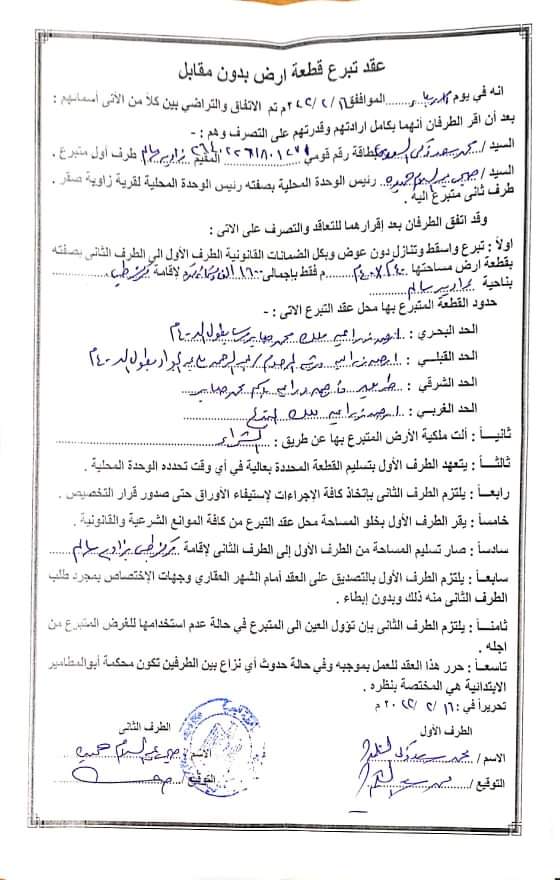 عقد تبرع قطعة ارض بدون مقابل
انه في يوم الاربعاء الموافق ١٦ / ٢ / ٢٠٢٢ م تم الاتفاق والتراضي بين كلاً من الآتى أسماءهم :
بعد أن اقر الطرفان أنهما بكامل ارادتهم وقدرتهم على التصرف وهم : -
السيد / محمد سعد بطاقة رقم قومي المقيم طرف أول متبرع .
السيد / صبحى عبد السلام حميده رئيس الوحدة المحلية بصفته رئيس الوحدة المحلية لقرية زاوية صقر .
طرف ثانى متبرع اليه .
وقد اتفق الطرفان بعد إقرارهما للتعاقد والتصرف على الاتى :
اولاً : تبرع واسقط وتنازل دون عوض وبكل الضمانات القانونية الطرف الأول الى الطرف الثانى بصفته
بقطعة ارض مساحتها ٤٠ × ٤٠ م فقط بإجمالى ١٦٠٠ لإقامة مركز طبى
بناحية سالم
حدود القطعة المتبرع بها محل عقد التبرع الاتى : -
الحد البحري : ارض زراعية ملك محمد صابر بطول ٤٠ م
الحد القبلي : ارض زراعية ورثة المرحوم / عبد الجواد بطول ٤٠ م
الحد الشرقي : طريق محمد صابر
الحد الغربي : ارض زراعية ملك المتبرع
ثانيـاً : ألت ملكية الأرض المتبرع بها عن طريق : الشراء
ثالثـاً : يتعهد الطرف الأول بتسليم القطعة المحددة بعالية في أي وقت تحدده الوحدة المحلية .
رابعـاً : يلتزم الطرف الثانى بإتخاذ كافة الإجراءات لإستيفاء الأوراق حتى صدور قرار التخصيص .
خامسـاً : يقر الطرف الأول بخلو المساحة محل عقد التبرع من كافة الموانع الشرعية والقانونية .
سادسـاً : صار تسليم المساحة من الطرف الأول إلى الطرف الثانى لإقامة مركز طبى سالم
سابعـاً : يلتزم الطرف الأول بالتصديق على العقد أمام الشهر العقاري وجهات الإختصاص بمجرد طلب
الطرف الثانى منه ذلك وبدون إبطاء .
ثامنـاً : يلتزم الطرف الثانى بإن تؤول العين الى المتبرع في حالة عدم استخدامها للغرض المتبرع من
اجله .
تاسعـاً : حرر هذا العقد للعمل بموجبه وفي حالة حدوث أي نزاع بين الطرفين تكون محكمة أبوالمطامير
الابتدائية هي المختصة بنظره .
تحريراً في : ١٦ / ٢ / ٢٠٢٢ م
الطرف الأول الطرف الثانى
الاسم / محمد سعد الاسم / صبحى عبد السلام حميده
التوقيع / محمد سعد التوقيع /